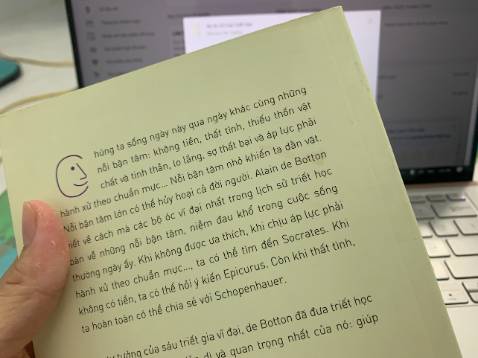 húng ta sống ngày này qua ngày khác cùng những
nỗi bận tâm: không tiền, thất tình, thiếu thốn vật
chất và tinh thần, lo lắng, sợ thất bại và áp lực phải
hành xử theo chuẩn mực... Nỗi bận tâm nhỏ khiến ta dằn vặt.
Nỗi bận tâm lớn có thể hủy hoại cả đời người. Alain de Botton
viết về cách mà các bộ óc vĩ đại nhất trong lịch sử triết học
bàn về những nỗi bận tâm, niệm đau khổ trong cuộc sống
thường ngày ấy. Khi không được ưa thích, khi chịu áp lực phải
hành xử theo chuẩn mực..., ta có thể tìm đến Socrates. Khi
không có tiền, ta có thể hỏi ý kiến Epicurus. Còn khi thất tình,
ta hoàn toàn có thể chia sẻ với Schopenhauer.
tư tưởng của sáu triết gia vĩ đại, de Botton đã đưa triết học
dị và quan trọng nhất của nó: giúp